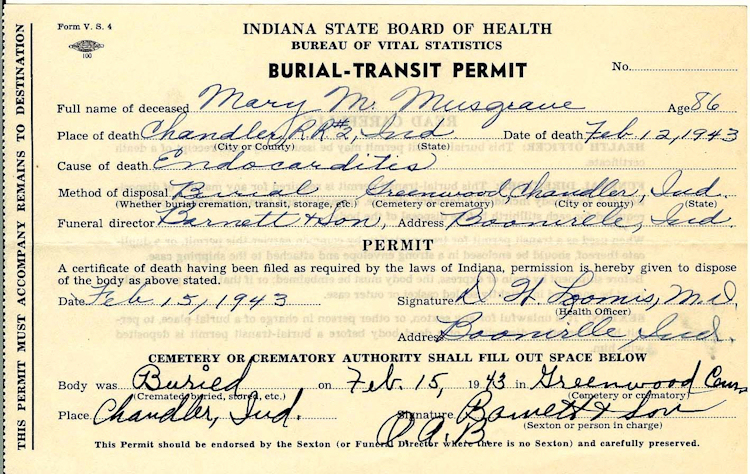 Form V. S. 4
100
INDIANA STATE BOARD OF HEALTH
BUREAU OF VITAL STATISTICS
BURIAL-TRANSIT PERMIT
No.
Full name of deceased Mary M. Musgrave Age 86
Place of death Chandler, RR#2, Ind Date of death Feb 12, 1943
(City or County) (State)
Cause of death Endocarditis
Method of disposal Burial Greenwood, Chandler, Ind.
(Whether burial, cremation, transit, storage, etc.) (Cemetery or crematory) (City or county) (State)
Funeral director Barnett & Son, Address Boonville, Ind
PERMIT
A certificate of death having been filed as required by the laws of Indiana, permission is hereby given to dispose
of the body as above stated.
Date Feb 15, 1943 Signature D H Loomis, M.D.
(Health Officer)
Address Boonville Ind.
CEMETERY OR CREMATORY AUTHORITY SHALL FILL OUT SPACE BELOW
Body was Buried on Feb. 15, 1943 in Greenwood Cem
(Cremated, buried, stored, etc.) (Cemetery or crematory)
Place Chandler, Ind. Signature Barnett & Son
(Sexton or person in charge)
P.A.B.
This Permit should be endorsed by the Sexton (or Funeral Director where there is no Sexton) and carefully preserved.
THIS PERMIT MUST ACCOMPANY REMAINS TO DESTINATION